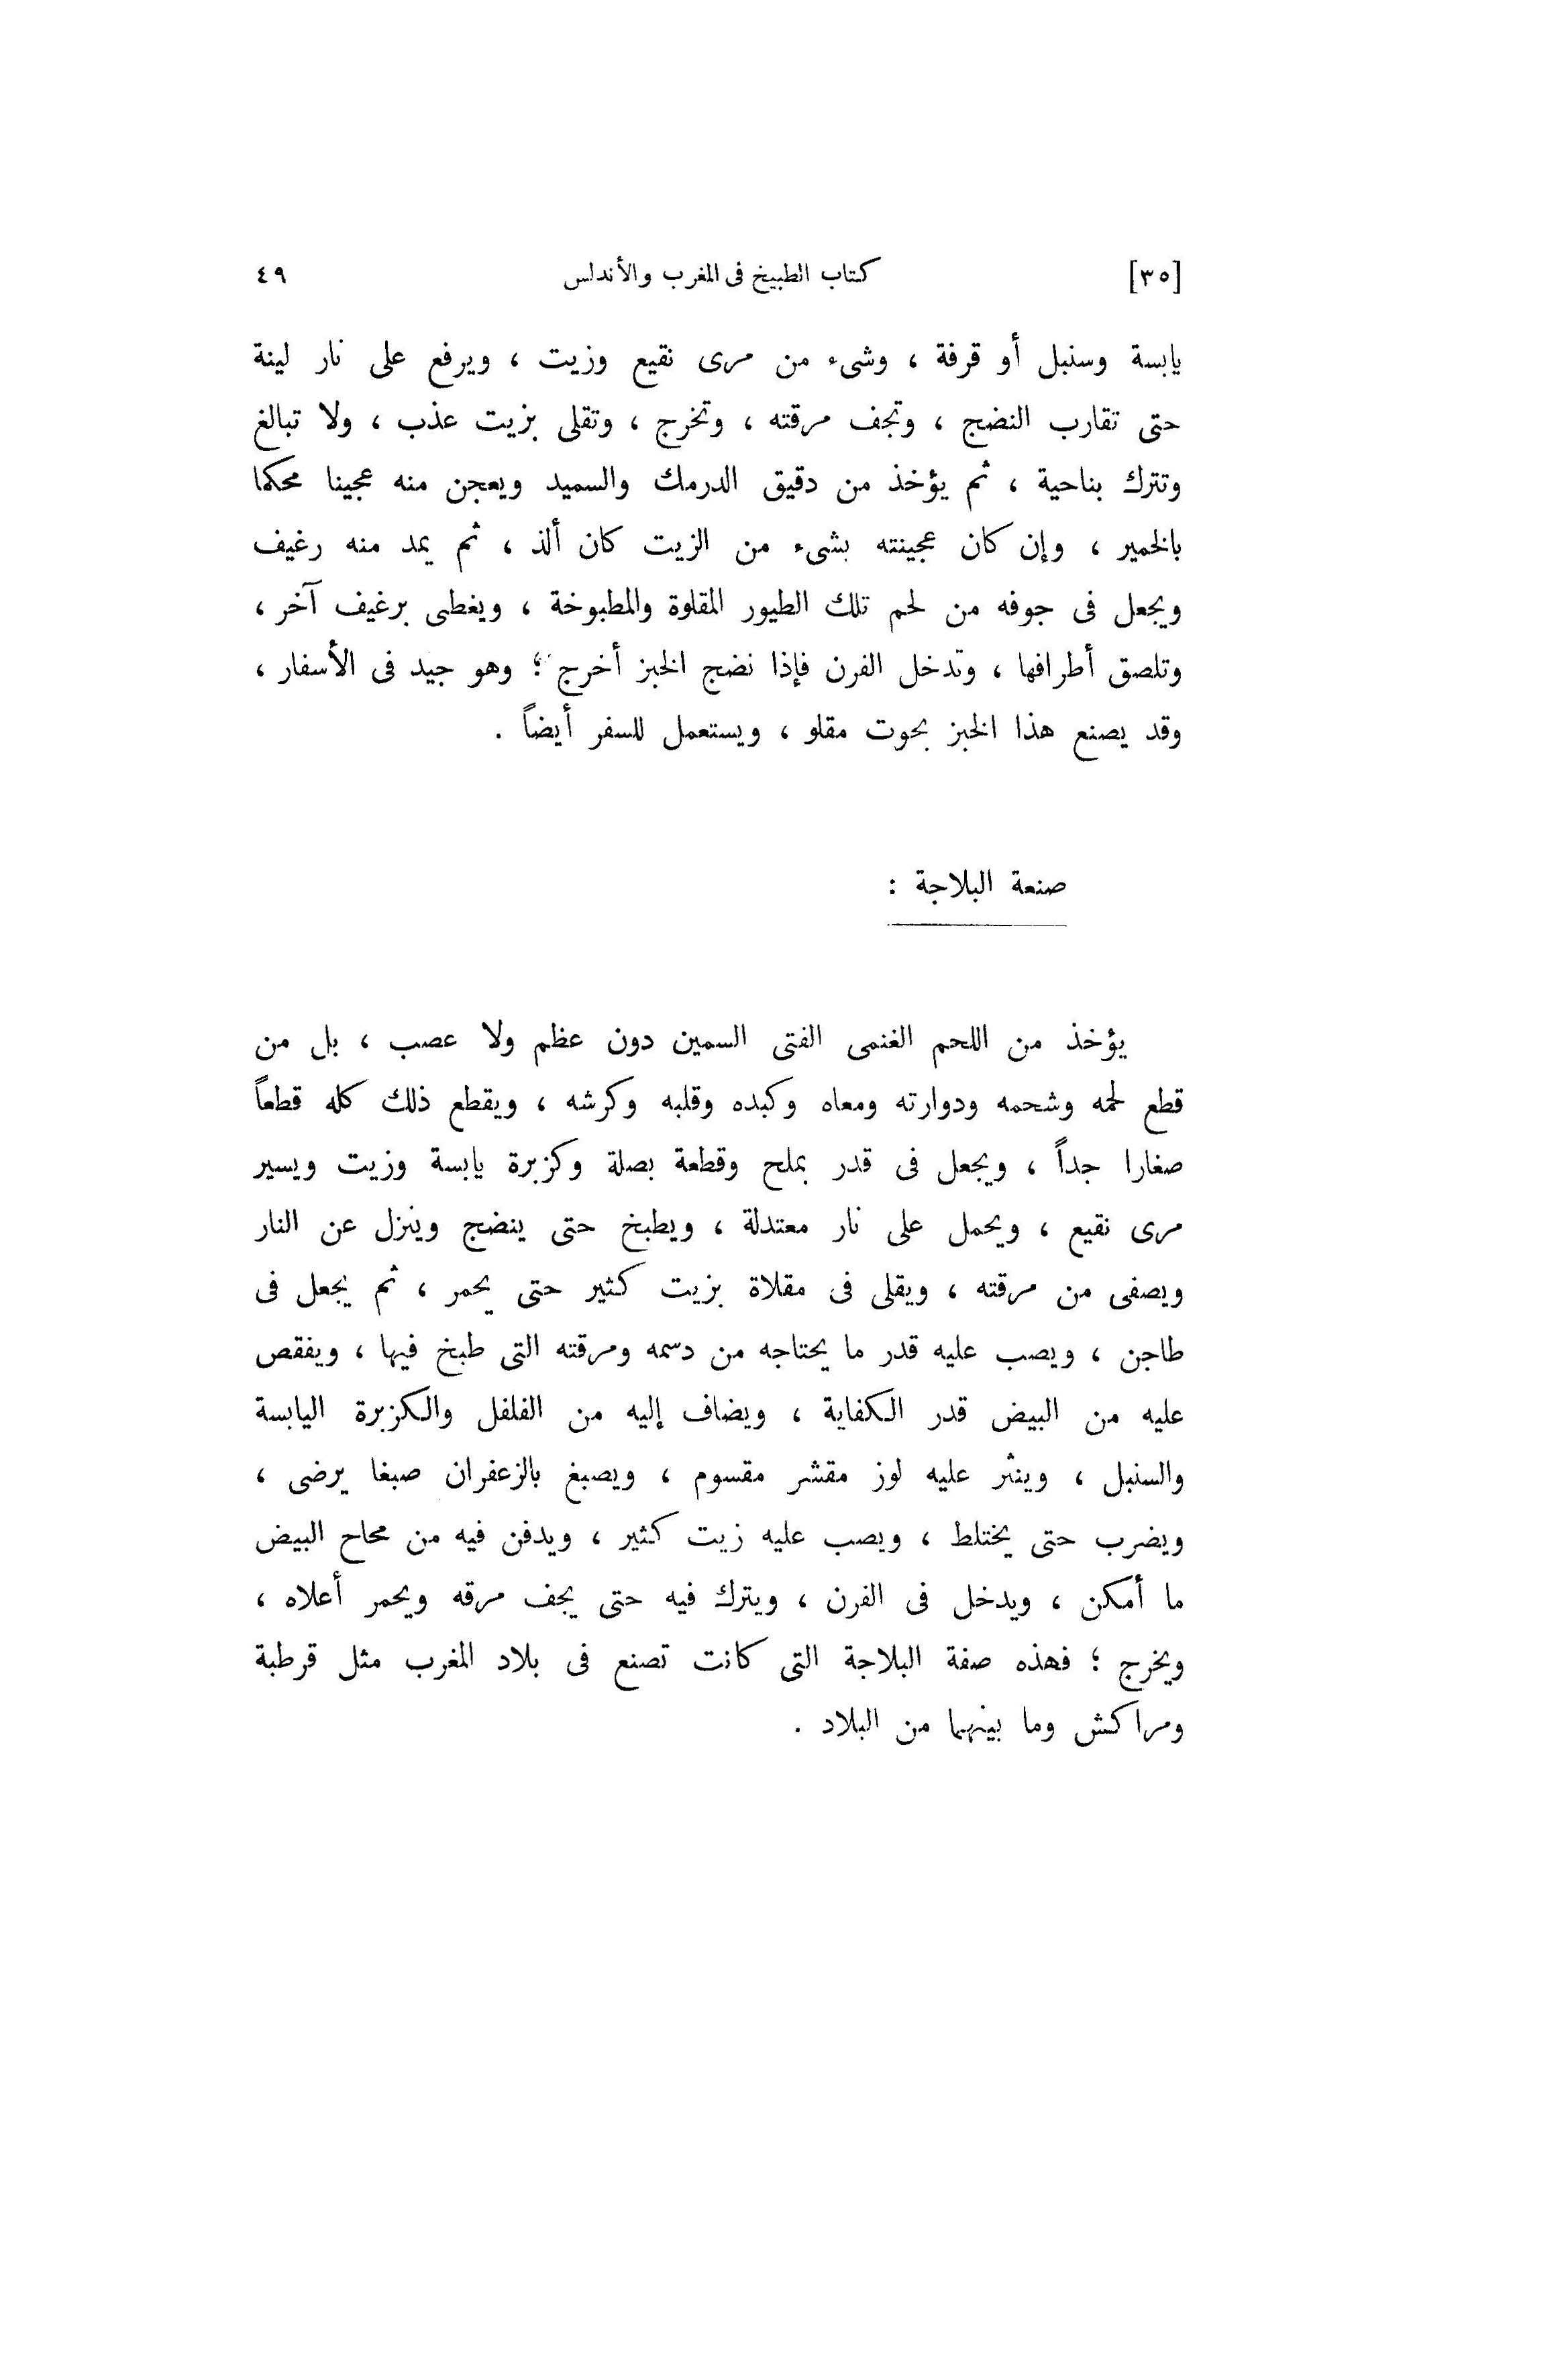 [٣٥] كتاب الطبيخ فى المغرب والأندلس ٤٩
يابسة وسنبل أو قرفة ، وشىء من مرى نقيع وزيت ، ويرفع على نار لينة
حتى تقارب النضج ، وتجف مرقته ، وتخرج ، وتقلى بزيت عذب ، ولا تبالغ
وتترك بناحية ، ثم يؤخذ من دقيق الدرمك والسميد ويعجن منه عجينا محكما
بالخمير ، وإن كان عجينته بشىء من الزيت كان ألذ ، ثم يمد منه رغيف
ويجعل فى جوفه من لحم تلك الطيور المقلوة والمطبوخة ، ويغطى برغيف آخر ،
وتلصق أطرافها ، وتدخل الفرن فإذا نضج الخبز أخرج ؛ وهو جيد فى الأسفار ،
وقد يصنع هذا الخبز بحوت مقلو ، ويستعمل للسفر أيضاً .
صنعة البلاجة :
يؤخذ من اللحم الغنمى الفتى السمين دون عظم ولا عصب ، بل من
قطع لحمه وشحمه ودوارته ومعاه وكبده وقلبه وكرشه ، ويقطع ذلك كله قطعاً
صغارا جداً ، ويجعل فى قدر بملح وقطعة بصلة وكزبرة يابسة وزيت ويسير
مرى نقيع ، ويحمل على نار معتدلة ، ويطبخ حتى ينضج وينزل عن النار
ويصفى من مرقته ، ويقلى فى مقلاة بزيت كثير حتى يحمر ، ثم يجعل فى
طاجن ، ويصب عليه قدر ما يحتاجه من دسمه ومرقته التى طبخ فيها ، ويفقص
عليه من البيض قدر الكفاية ، ويضاف إليه من الفلفل والكزبرة اليابسة
والسنبل ، وينثر عليه لوز مقشر مقسوم ، ويصبغ بالزعفران صبغا يرضى ،
ويضرب حتى يختلط ، ويصب عليه زيت كثير ، ويدفن فيه من محاح البيض
ما أمكن ، ويدخل فى الفرن ، ويترك فيه حتى يجف مرقه ويحمر أعلاه ،
ويخرج ؛ فهذه صفة البلاجة التى كانت تصنع فى بلاد المغرب مثل قرطبة
ومراكش وما بينهما من البلاد .